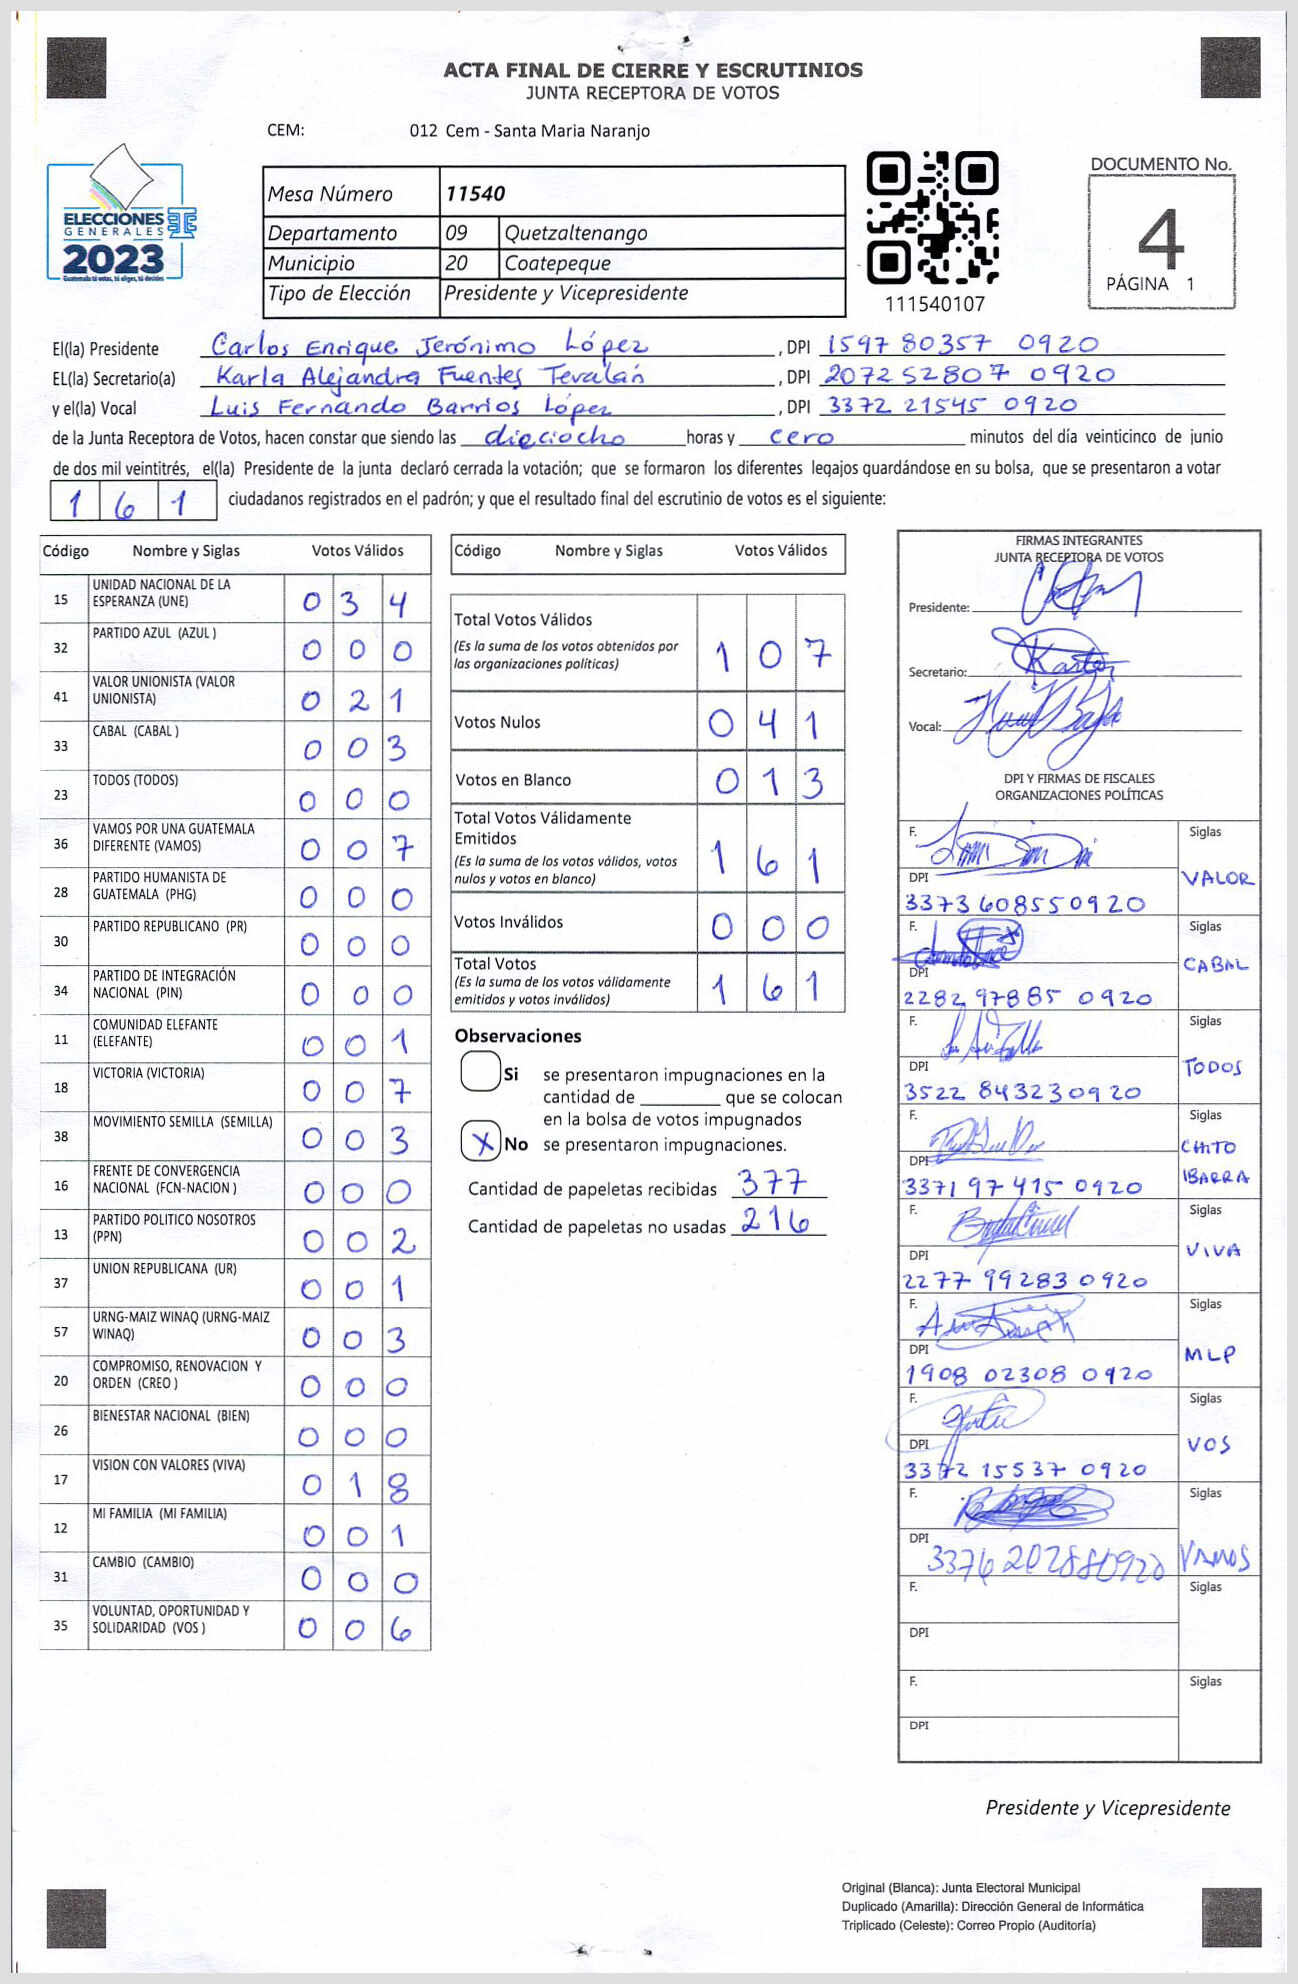 ACTA FINAL DE CIERRE Y ESCRUTINIOS
JUNTA RECEPTORA DE VOTOS
CEM: 012 Cem - Santa Maria Naranjo
ELECCIONES
GENERALES
2023
Guatemala tú votas, tú eliges, tú decides
Mesa Número 11540
Departamento 09 Quetzaltenango
Municipio 20 Coatepeque
Tipo de Elección Presidente y Vicepresidente
111540107
DOCUMENTO No.
4
PÁGINA 1
El(la) Presidente Carlos Enrique Jerónimo López, DPI 1597 80357 0920
EL(la) Secretario(a) Karla Alejandra Fuentes Tevalán, DPI 2072 52807 0920
y el(la) Vocal Luis Fernando Barrios López, DPI 3372 21545 0920
de la Junta Receptora de Votos, hacen constar que siendo las dieciocho horas y cero minutos del día veinticinco de junio
de dos mil veintitrés, el(la) Presidente de la junta declaró cerrada la votación; que se formaron los diferentes legajos guardándose en su bolsa, que se presentaron a votar
161 ciudadanos registrados en el padrón; y que el resultado final del escrutinio de votos es el siguiente:
Código Nombre y Siglas Votos Válidos
15 UNIDAD NACIONAL DE LA ESPERANZA (UNE) 034
32 PARTIDO AZUL (AZUL ) 000
41 VALOR UNIONISTA (VALOR UNIONISTA) 021
33 CABAL (CABAL ) 003
23 TODOS (TODOS) 000
36 VAMOS POR UNA GUATEMALA DIFERENTE (VAMOS) 007
28 PARTIDO HUMANISTA DE GUATEMALA (PHG) 000
30 PARTIDO REPUBLICANO (PR) 000
34 PARTIDO DE INTEGRACIÓN NACIONAL (PIN) 000
11 COMUNIDAD ELEFANTE (ELEFANTE) 001
18 VICTORIA (VICTORIA) 007
38 MOVIMIENTO SEMILLA (SEMILLA) 003
16 FRENTE DE CONVERGENCIA NACIONAL (FCN-NACION ) 000
13 PARTIDO POLITICO NOSOTROS (PPN) 002
37 UNION REPUBLICANA (UR) 001
57 URNG-MAIZ WINAQ (URNG-MAIZ WINAQ) 003
20 COMPROMISO, RENOVACION Y ORDEN (CREO ) 000
26 BIENESTAR NACIONAL (BIEN) 000
17 VISION CON VALORES (VIVA) 018
12 MI FAMILIA (MI FAMILIA) 001
31 CAMBIO (CAMBIO) 000
35 VOLUNTAD, OPORTUNIDAD Y SOLIDARIDAD (VOS ) 006
Código Nombre y Siglas Votos Válidos
Total Votos Válidos
(Es la suma de los votos obtenidos por las organizaciones políticas) 107
Votos Nulos 041
Votos en Blanco 013
Total Votos Válidamente Emitidos
(Es la suma de los votos válidos, votos nulos y votos en blanco) 161
Votos Inválidos 000
Total Votos
(Es la suma de los votos válidamente emitidos y votos inválidos) 161
Observaciones
Si se presentaron impugnaciones en la
cantidad de ________ que se colocan
en la bolsa de votos impugnados
X No se presentaron impugnaciones.
Cantidad de papeletas recibidas 377
Cantidad de papeletas no usadas 216
FIRMAS INTEGRANTES
JUNTA RECEPTORA DE VOTOS
Presidente:
Secretario:
Vocal:
DPI Y FIRMAS DE FISCALES
ORGANIZACIONES POLÍTICAS
F. Siglas
DPI VALOR
3373 60855 0920
F. Siglas
DPI CABAL
2282 97885 0920
F. Siglas
DPI TODOS
3522 84323 0920
F. Siglas
DPI CHITO IBARRA
3371 97415 0920
F. Siglas
DPI VIVA
2277 99283 0920
F. Siglas
DPI MLP
1908 02308 0920
F. Siglas
DPI VOS
3372 15537 0920
F. Siglas
DPI VAMOS
3376 20288 0920
F. Siglas
DPI
F. Siglas
DPI
Presidente y Vicepresidente
Original (Blanca): Junta Electoral Municipal
Duplicado (Amarilla): Dirección General de Informática
Triplicado (Celeste): Correo Propio (Auditoría)